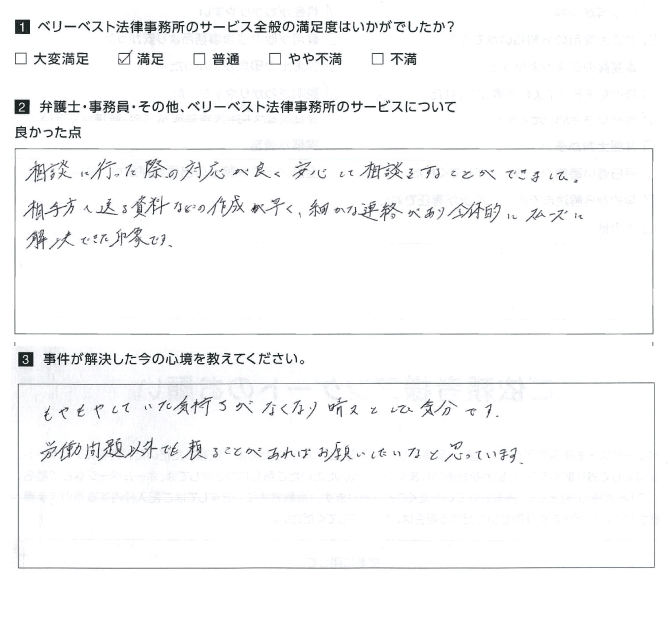 1 ベリーベスト法律事務所のサービス全般の満足度はいかがでしたか?
□ 大変満足 ☑ 満足 □ 普通 □ やや不満 □ 不満
2 弁護士・事務員・その他、ベリーベスト法律事務所のサービスについて
良かった点
相談に行った際の対応が良く安心して相談をすることができました。
相手方へ送る資料などの作成が早く、細かな連絡があり全体的にスムーズに
解決できた印象です。
3 事件が解決した今の心境を教えてください。
もやもやしていた気持ちがなくなり晴々とした気分です。
労働問題以外でも頼ることがあればお願いしたいなと思っています。